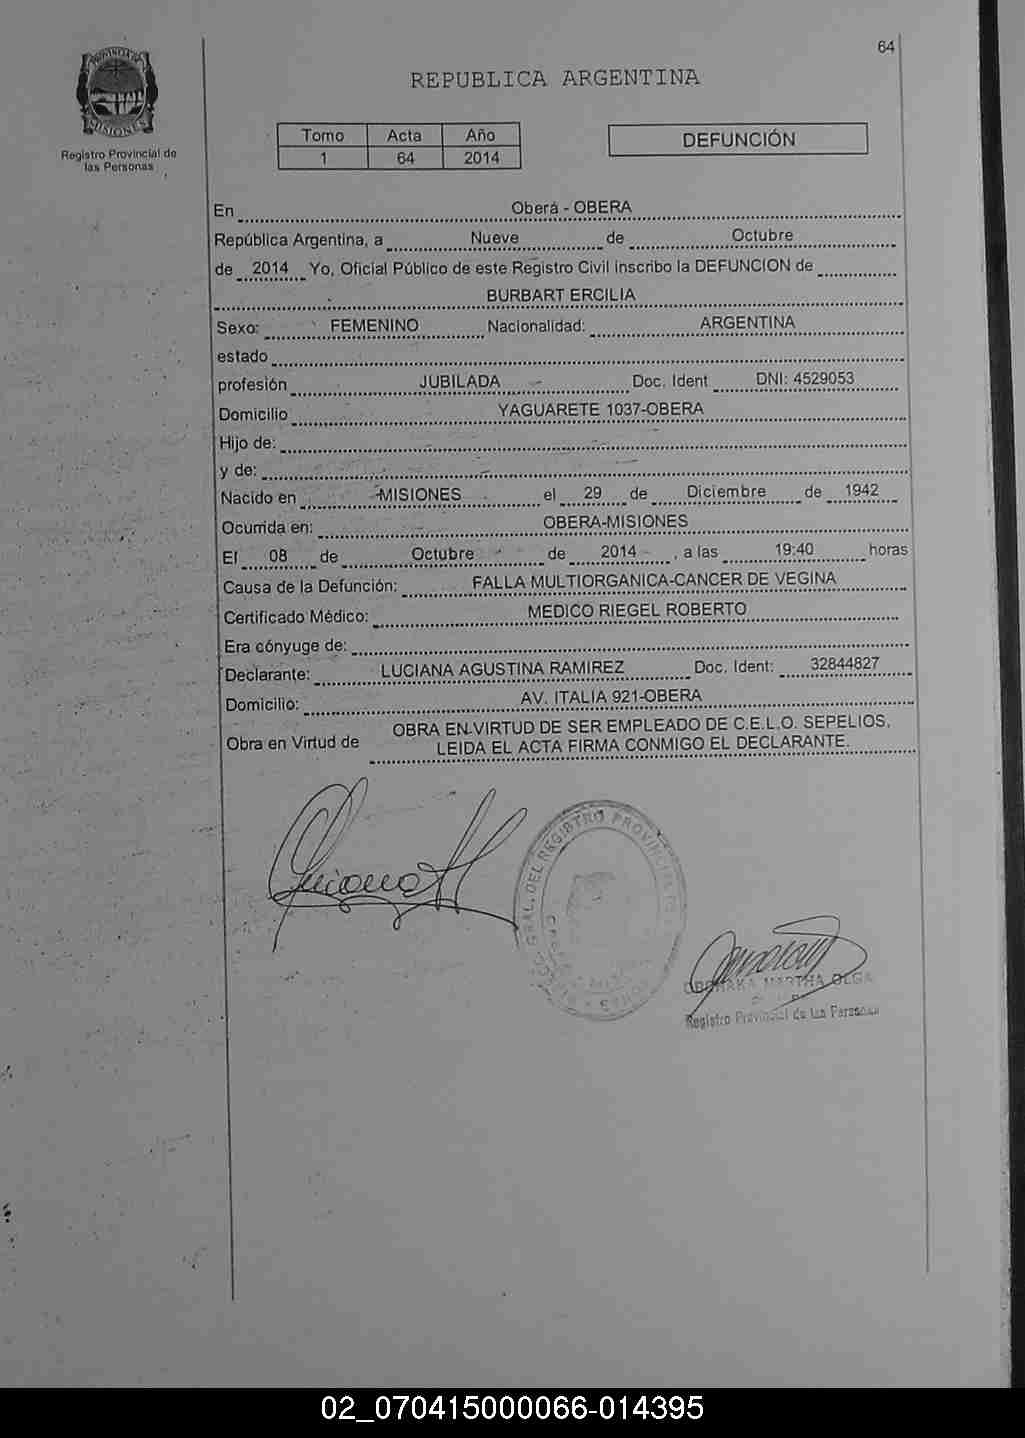 64
PROVINCIA DE
MISIONES
Registro Provincial de
las Personas
REPUBLICA ARGENTINA
Tomo Acta Año
1 64 2014
DEFUNCIÓN
En Oberá - OBERA
República Argentina, a Nueve de Octubre
de 2014 Yo, Oficial Público de este Registro Civil inscribo la DEFUNCION de
BURBART ERCILIA
Sexo: FEMENINO Nacionalidad: ARGENTINA
estado
profesión JUBILADA Doc. Ident DNI: 4529053
Domicilio YAGUARETE 1037-OBERA
Hijo de:
y de:
Nacido en MISIONES el 29 de Diciembre de 1942
Ocurrida en: OBERA-MISIONES
El 08 de Octubre de 2014 , a las 19:40 horas
Causa de la Defunción: FALLA MULTIORGANICA-CANCER DE VEGINA
Certificado Médico: MEDICO RIEGEL ROBERTO
Era cónyuge de:
Declarante: LUCIANA AGUSTINA RAMIREZ Doc. Ident: 32844827
Domicilio: AV. ITALIA 921-OBERA
Obra en Virtud de OBRA EN VIRTUD DE SER EMPLEADO DE C.E.L.O. SEPELIOS.
LEIDA EL ACTA FIRMA CONMIGO EL DECLARANTE.
GRAL. DEL REGISTRO PROVINCIAL
MARTHA OLGA
Registro Provincial de las Personas
02_070415000066-014395